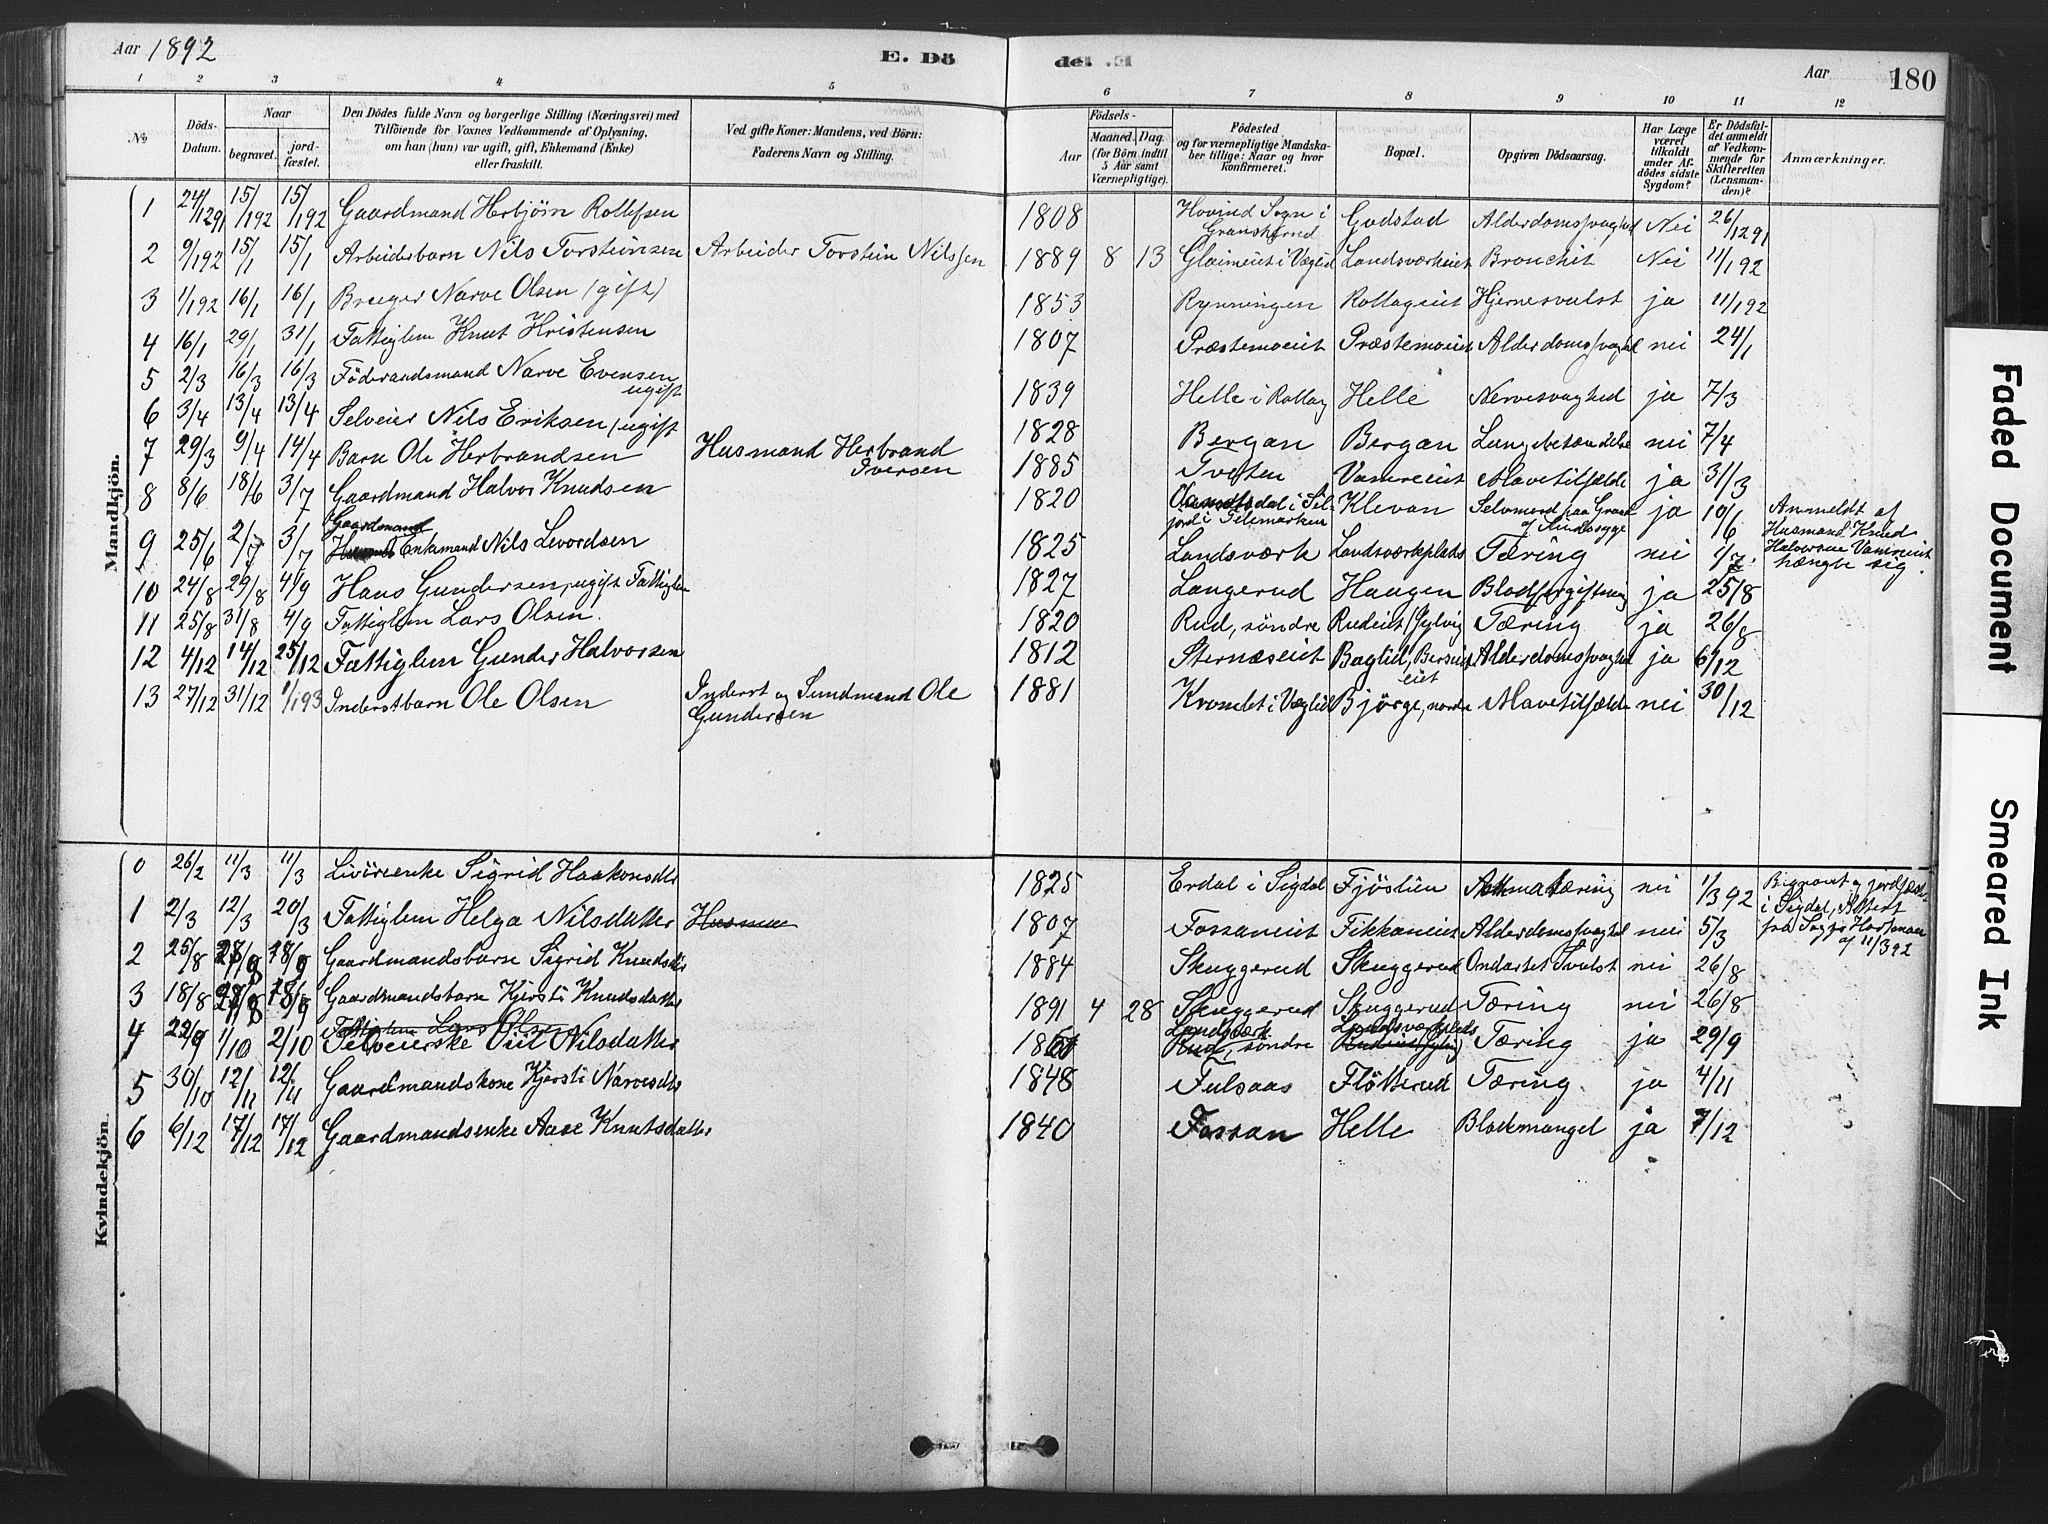 Aar 1892
E. Dö
de. E
Aar
180
1 2 3 4 5 6 7 8 9 10 11 12
№
Döds-Datum.
Naar
begravet.
jordfæstet.
Den Dödes fulde Navn og borgerlige Stilling (Næringsvei) med
Tilföiende for Voxnes Vedkommende af Oplysning,
om han (hun) var ugift, gift, Enkemand (Enke)
eller fraskilt.
Ved gifte Koner: Mandens, ved Börn:
Faderens Navn og Stilling.
Födsels-
Aar
Maaned. Dag.
(for Börn indtil
5 Aar samt
Værnepligtige).
Födested
og for værnepligtige Mandska-
ber tillige: Naar og hvor
konfirmeret.
Bopæl.
Opgiven Dödsaarsag.
Har Læge
været
tilkaldt
under Af-
dödes sidste
Sygdom?
Er Dödsfal-
det anmeldt
af Vedkom-
mende for
Skifteretten
(Lensman-
den)?
Anmærkninger.
Mandkjön.
1 24/1291 15/192 15/192 Gaardmand Herbjörn Rollefsen 1808 Hovind Sogn i Gransherred Gudstad Alderdomssvaghed Nei 26/1291
2 9/192 15/1 15/1 Arbeidsbarn Nils Torsteinsen Arbeider Torstein Nilssen 1889 8 13 Glaimeiet i Væglid Landsværkeiet Bronchit Nei 11/192
3 1/192 16/1 16/1 Bruger Narve Olsen (gift) 1853 Rynningen Rollageiet Hjernesvulst ja 11/192
4 16/1 29/1 31/1 Fattiglem Knut Kristensen 1807 Præstemoeiet Præstemoeiet Alderdomssvaghed nei 24/1
5 2/3 16/3 16/3 Föderaadsmand Narve Evensen ugift 1839 Helle i Rollag Helle Nervesvaghed ja 7/3
6 3/4 13/4 13/4 Selveier Nils Eriksen, ugift 1828 Bergan Bergan Lungebetændelse nei 7/4
7 29/3 9/4 14/4 Barn Ole Herbrandsen Husmand Herbrand Iversen 1885 Tveten Vamreiet Mavetilfælde ja 31/3
8 8/6 18/6 3/7 Gaardmand Halvor Knudsen 1820 i Siljord i Telemarken Klevan Selvmord paa Grund af Sindssyge ja 10/6 Anmeldt af Husmand Knud Halvorsen Vamreiet hængte sig.
9 25/6 2/7 3/7 Gaardmand Enkemand Nils Levordsen 1825 Landsværk Landsværkplads Tæring nei 1/7
10 24/8 29/8 4/9 Hans Gundersen, ugift Fattiglem 1827 Langerud Haugen Blodforgiftning ja 25/8
11 25/8 31/8 4/9 Fattiglem Lars Olsen. 1820 Rud, söndre Rudeiet Tæring ja 26/8
12 4/12 14/12 25/12 Fattiglem Gunder Halvorsen 1812 Sternæseiet Baglid, Alderdomssvaghed ja 6/12
13 27/12 31/12 1/193 Inderstbarn Ole Olsen Inderst og Sundmand Ole Gundersen 1881 Kromdet i Væglid Björge, nordre Mavetilfælde nei 30/12
Kvindekjön.
0 26/2 11/3 11/3 Livöreenke Sigrid Haakonsdtr 1825 Erdal i Sigdal Fjöslien Asthma tæring nei 1/3 92 Begravet og jordfæstet i Sigdal, Attest fra Sogpr Horfsman af 11/3 92
1 2/3 12/3 20/3 Fattiglem Helga Nilsdatter Husma 1807 Fossaneiet Fikkaneiet Alderdomssvaghed nei 5/3
2 25/8 Gaardmandsbarn Sigrid Knudsdtr 1884 Skuggerud Skuggerud Ondartet Svulst nei 26/8
3 18/8 Gaardmandsbarn Kjersti Knudsdatter 1891 4 28 Skuggerud Skuggerud Tæring nei 26/8
4 22/9 1/10 2/10 Fattiglem Lars Olsen Selveierske Viil Nilsdatter Landsværk Rud, söndre Landsværkplads Tæring ja 29/9
5 30/10 12/11 12/11 Gaardmandskone Kjersti Narvesdtr 1848 Fulsaas Flötterud Tæring ja 4/11
6 6/12 17/12 17/12 Gaardmandsenke Aase Knutsdatter 1840 Fossan Helle Blodmangel ja 7/12
Faded Document
Smeared Ink